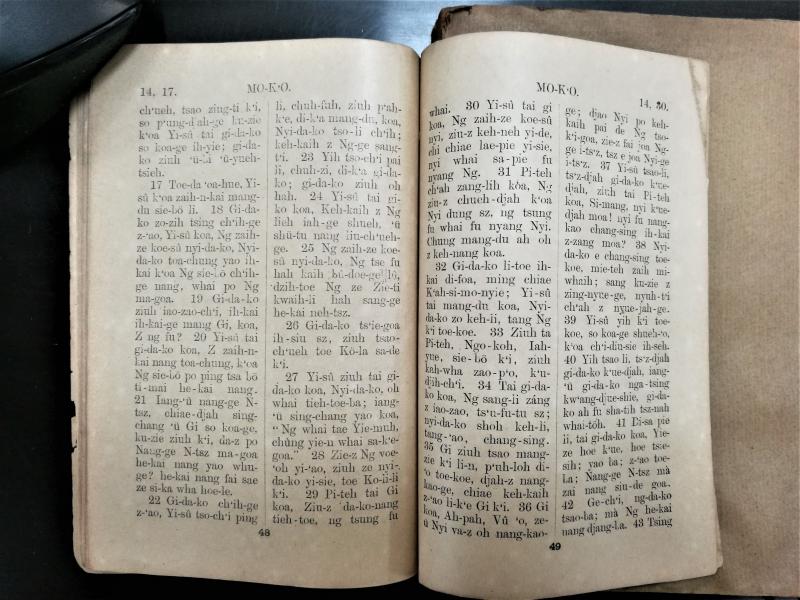 14, 17.
MO-K‘O.
ch‘ueh, tsao zing-ti k‘i,
so p‘ung-d‘ah-ge ku-zie
k‘oa Yi-sû tai gi-da-ko
so koa-ge ih-yie; gi-da-
ko ziuh
tsieh.
17 Toe-da ‘oa-hue, Yi-
sû k‘oa zaih-n-kai mang-
du sie-bö li. 18 Gi-da-
ko zo-zih tsing ch‘ih-ge
z-‘ao, Yi-sû koa, Ng zaih-
ze koe-sû nyi-da-ko, Nyi-
da-ko toa-chung yao ih-
kai k‘oa Ng sie-bö ch‘ih-
ge nang, whai po Ng
ma-goa. 19 Gi-da-ko
ziuh iao-zao-ch‘i, ih-kai
ih-kai-ge mang Gi, koa,
Z ng fu? 20 Yi-sû tai
gi-da-ko koa, Z zaih-n-
kai nang toa-chung, k‘oa
Ng sie-bö po ping tsa bö
ti-mai he-kai nang.
21 Iang-‘ü nang-ge N-
tsz, chiae-djah sing-
chang ‘ü Gi so koa-ge,
ku-zie ziuh k‘i, da-z po
Nang-ge N-tsz ma-goa
he-kai nang yao whu-
ge? he-kai nang fai sae
ze si-ka wha hoe-le.
22 Gi-da-ko ch‘ih-ge
z-‘ao, Yi-sû tso-ch‘i ping
li, chuh-fuh, ziuh p‘ah-
k‘e, di-k‘a mang-du, koa,
Nyi-da-ko tso-li ch‘ih;
keh-kaih z Ng-ge sang-
t‘i. 23 Yih tso-ch‘i pai
li, chuh-zi, di-k‘a gi-da-
ko; gi-da-ko ziuh oh
hah. 24 Yi-sû tai gi-
da-ko koa, Keh-kaih z Ng
lieh iah-ge shueh, ‘ü
shü-tu nang liu-ch‘ueh-
ge. 25 Ng zaih-ze koe-
sû nyi-da-ko, Ng tse fu
hah kaih bû-doe-ge lû,
dzih-toe Ng ze Zie-ti
kwaih-li hah sang-ge
he-kai neh-tsz.
26 Gi-da-ko ts‘ie-goa
ih-siu sz, ziuh tsao-
ch‘ueh toe Kö-la sa-de
k‘i.
27 Yi-sû ziuh tai gi-
da-ko koa, Nyi-da-ko, oh
whai tieh-toe-ba; iang-
‘ü sing-chang yao koa,
“ Ng whai tae Yie-muh,
chûng yie-n whai sa-k‘e-
goa.” 28 Zie-z Ng voe-
‘oh yi-‘ao, ziuh ze nyi-
da-ko yi-sie, toe Ko-li-li
k‘i. 29 Pi-teh tai Gi
koa, Ziu-z da-ko-nang
tieh-toe, ng tsung fu
48
MO-K‘O.
14, 30.
whai. 30 Yi-sû tai gi
koa, Ng zaih-ze koe-sû
nyi, ziu-z keh-neh yi-de,
chi chiae lae-pie yi-sie,
nyi whai sa-pie fu
nyang Ng. 31 Pi-teh
ch‘ah zang-lih köa, Ng
ziu-z chueh-djah k‘oa
Nyi dung sz, ng tsung
fu whai fu nyang Nyi.
Chung mang-du ah oh
z keh-nang koa.
32 Gi-da-ko li-toe ih-
kai di-foa, ming chiae
K‘ah-si-mo-nyie; Yi-sû
tai mang-du koa, Nyi-
da-ko zo keh-li, tang Ng
k‘i toe-koe. 33 Ziuh ta
Pi-teh, Ngo-koh, Iah-
yue, sie-bö k‘i, ziuh
kah-wha zao-p‘o, k‘u-
djih-ch‘i. 34 Tai gi-da-
ko koa, Ng sang-li záng
z iao-zao, ts‘u-fu-tu sz;
nyi-da-ko shoh keh-li,
tang-‘ao, chang-sing.
35 Gi ziuh tsao mang-
zie k‘i li-n, p‘uh-loh di-
‘o toe-koe, djah-z nang-
kao-ge, chiae keh-kaih
z-‘ao li-k‘e Gi k‘i. 36 Gi
koa, Ah-pah, Vû ‘o, ze-
û Nyi va-z oh nang-kao-
ge; djao Nyi po keh-
kaih pai de Ng tso-
k‘i-goa, zie-z fai joa Ng-
ge i-ts‘z, tsz e joa Nyi-ge
i-ts‘z. 37 Yi-sû tsao-li,
ts‘z-djah gi-da-ko k‘ue-
djah, ziuh tai Pi-teh
koa, Si-mang, nyi k‘ue-
djah moa! nyi fu nang-
kao chang-sing ih-kai
z-zang moa? 38 Nyi-
da-ko e chang-sing toe-
koe, mie-teh zaih mi-
whaih; sang ku-zie z
zing-nyue-ge, nyuh-t‘i
ch‘ah z nyue-jah-ge.
39 Yi-sû yih k‘i toe-
koe, so koa-ge shueh-‘o,
k‘oa ch‘i-diu-sie ih-seh.
40 Yih tsao li, ts‘z-djah
gi-da-ko k‘ue-djah, iang-
‘ü gi-da-ko nga-tsing
kw‘ang-djue-shie, gi-da-
ko ah fu sha-tih tsz-nah
whai-töh. 41 Di-sa pie
li, tai gi-da-ko koa, Yie-
ze hoe k‘ue, hoe tsie-
sih; yao ba; z-‘ao toe-
ba; Nang-ge N-tsz mà
zai nang siu-de goa.
42 Ge-ch‘i, ng-da-ko
tsao-ba; mà Ng he-kai
nang djang-ba. 43 Tsing
49